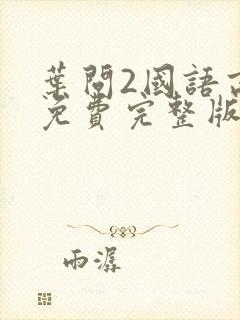 葉問2國語高
免費完整版
雨潺